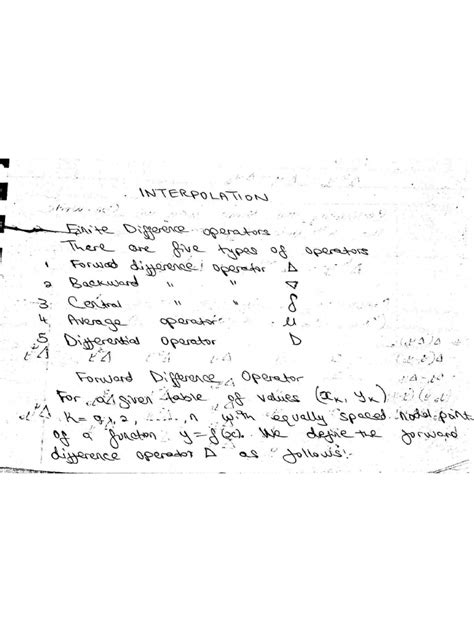 INTERPOLATION
Finite Difference operators
There are five types of operators
1 Forward difference operator Δ
2 Backward " " ∇
3 Central " " δ
4 Average operator μ
5 Differential operator D
Forward Difference Operator
For a given table of values (xₖ, yₖ)
k = 0, 1, 2, ......, n with equally spaced nodal point
of a function y = f(x). We define the forward
difference operator Δ as follows: